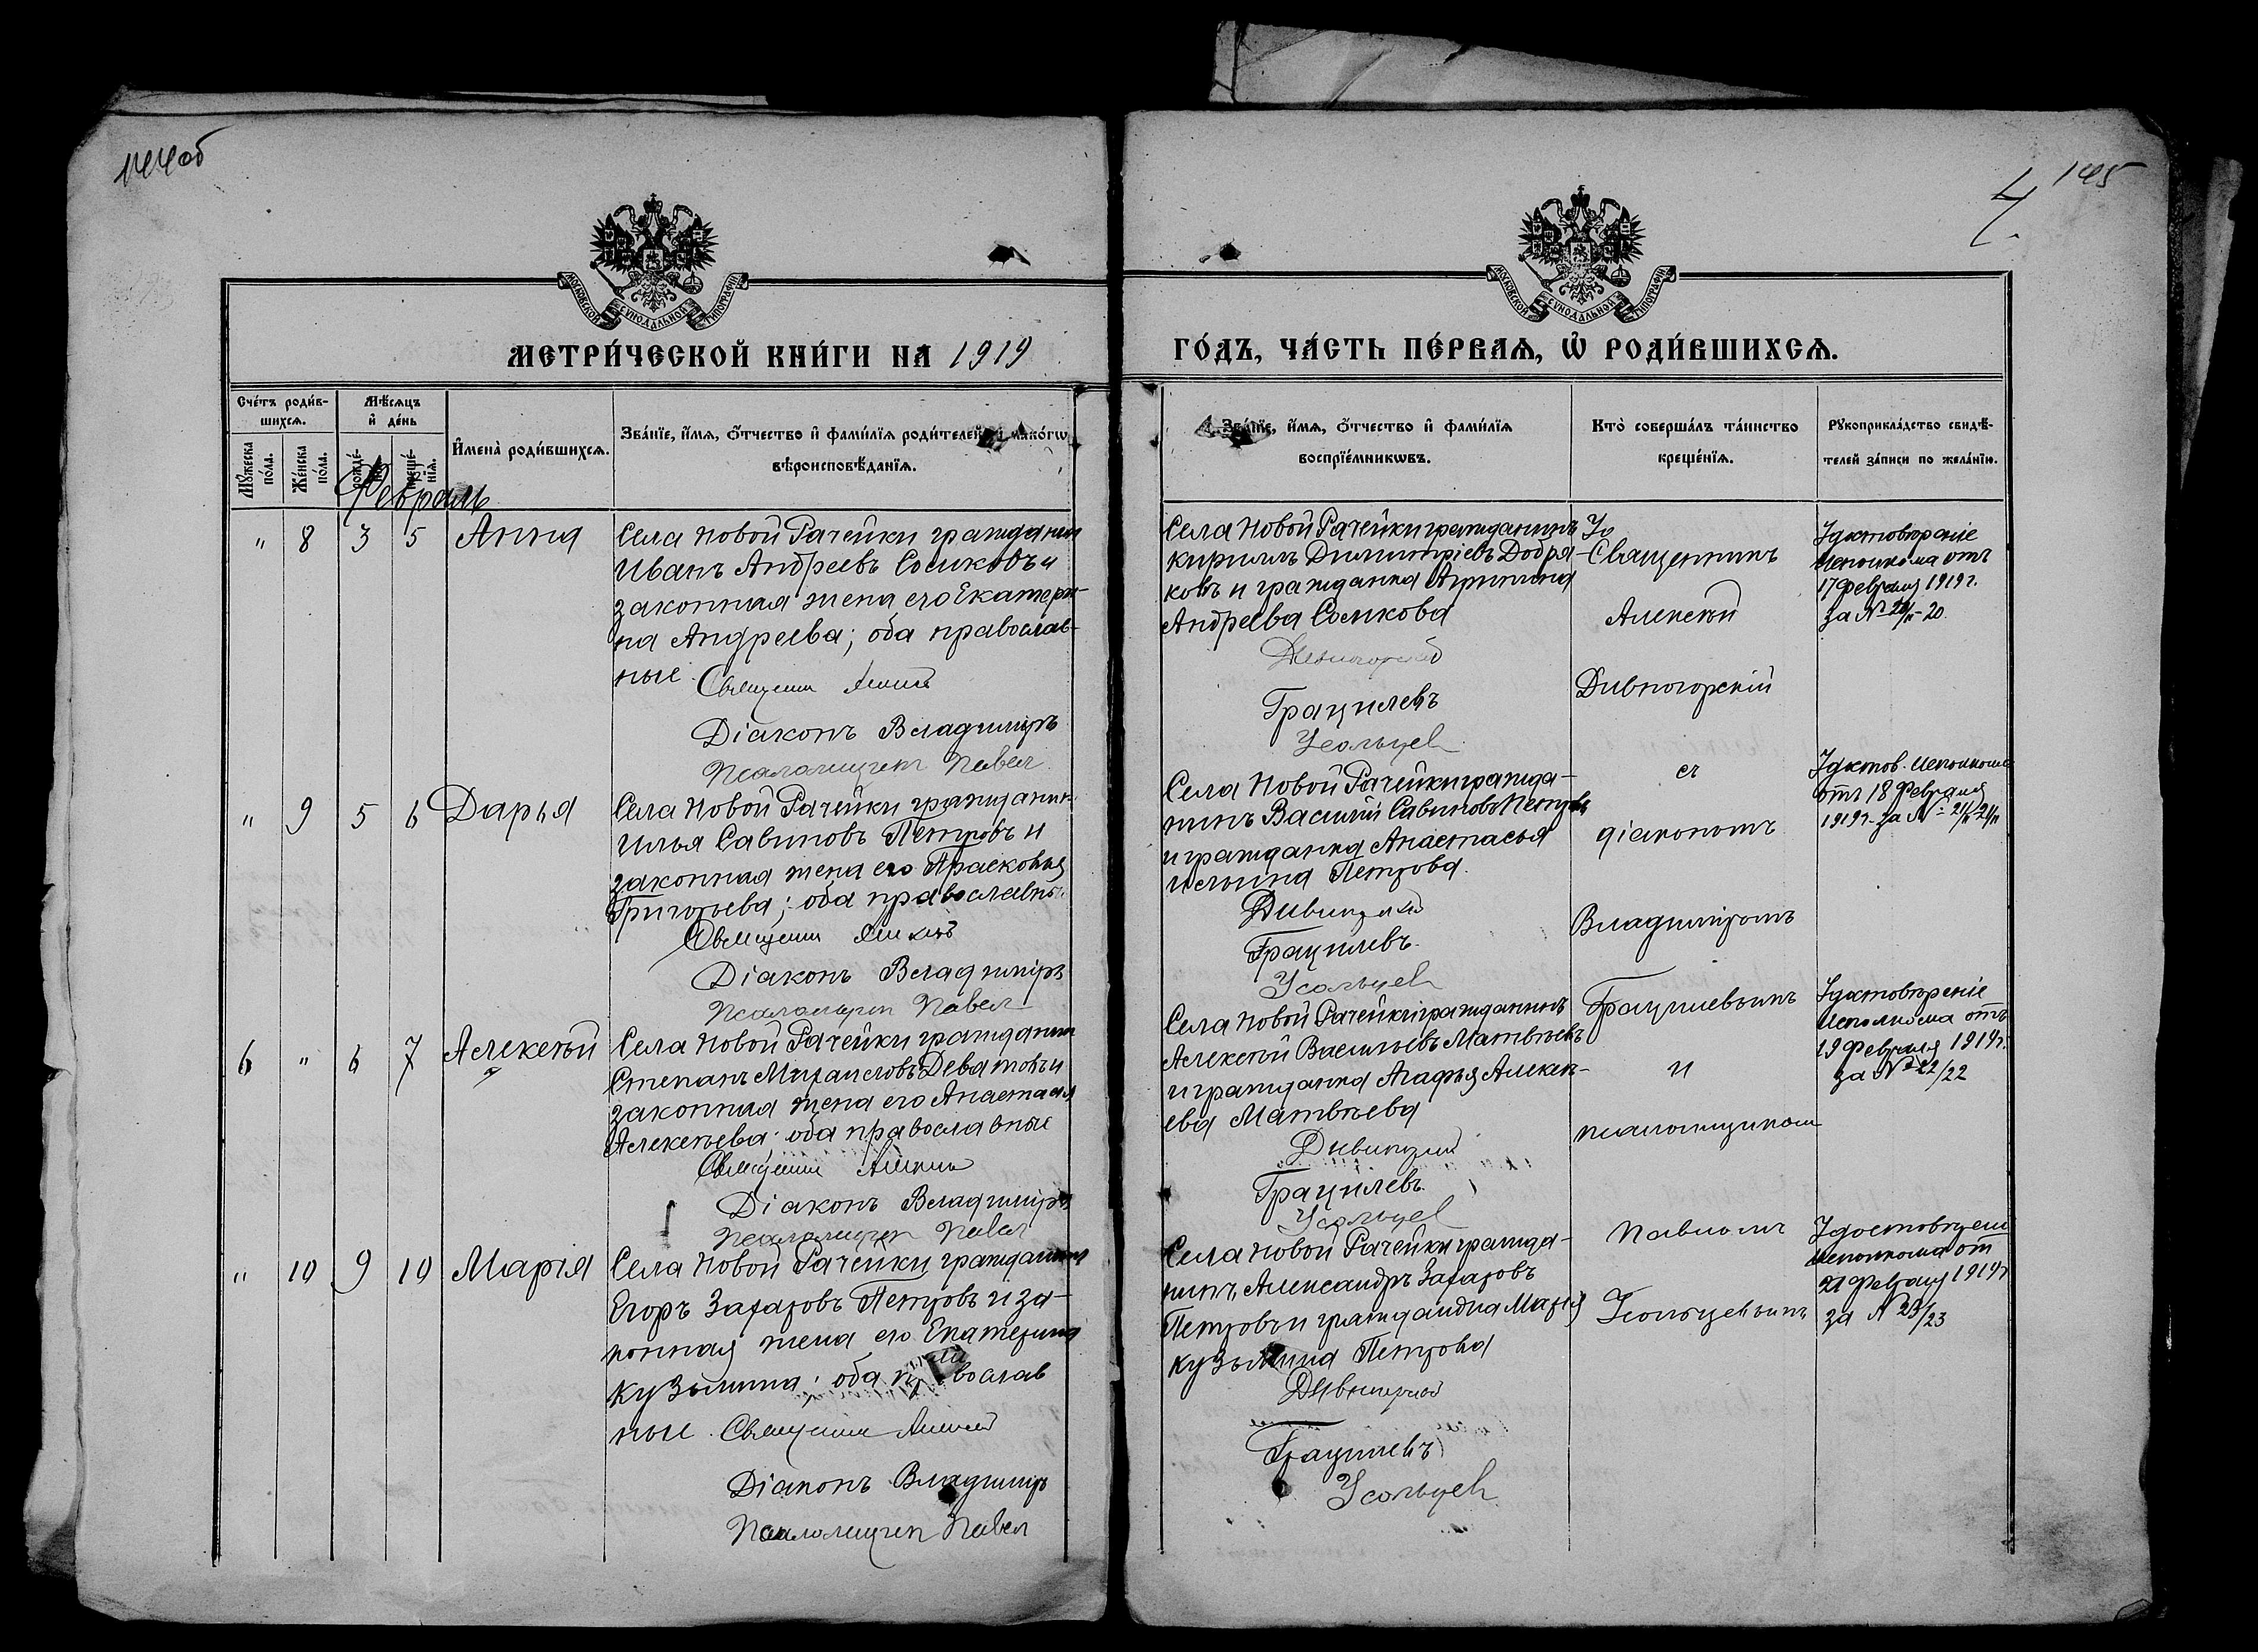 144об
4.
145
МОСКОВСКОЙ СѴНОДАЛЬНОЙ ТИПОГРАФІИ
МОСКОВСКОЙ СѴНОДАЛЬНОЙ ТИПОГРАФІИ
МЕТРИ́ЧЕСКОЙ КНИ́ГИ НА 1919
ГО́ДЪ, ЧА́СТЬ ПЕ́РВАѦ, Ѡ҆ РОДИ́ВШИХСѦ.
Сче́тъ роди́в-
шихсѧ.
Мѣ́сѧцъ
и҆ де́нь
Мꙋ́жеска
по́ла.
Же́нска
по́ла.
рожде́-
креще́-
нїѧ.
И҆мена̀ роди́вшихсѧ.
Зва́нїе, и҆́мѧ, ѻ҆́тчество и҆ фами́лїѧ роди́телей и҆ како́гѡ
вѣроисповѣ́данїѧ.
Зва́нїе, и҆́мѧ, ѻ҆́тчество и҆ фами́лїѧ
воспрїе́мникѡвъ.
Кто̀ соверша́лъ та́инство
креще́нїѧ.
Рꙋкоприкла́дство свидѣ́-
телей за́писи по жела́нїю.
Февраль
" 8 3 5 Анна
Села Новой Рачейки гражданин
Иванъ Андреевъ Сомиковъ и
законная жена его Екатери-
на Андреева; оба православ-
ные
Священн Алексій
Діаконъ Владиміръ
Псаломщик Павел
Села Новой Рачейки гражданинъ
Кириллъ Димитріевъ Добря-
ковъ и гражданка Агрипина
Андреева Сомикова
Дивногорскій
Грацилевъ
Усольцев
Священникъ
Алексѣй
Дивногорскій
Удостовѣреніе
Исполкома отъ
17 Февраля 1919 г.
" 9 5 6 Дарья
Села Новой Рачейки гражданин
Илья Савиновъ Петровъ и
законная жена его Прасковья
Григорьева; оба православны
Священн Алексій
Діаконъ Владиміръ
Псаломщик Павел
Села Новой Рачейки гражда-
нинъ Василій Савиновъ Петровъ
и гражданка Анастасья
Ильина Петрова.
Дивногорскій
Грацилевъ.
Усольцев
съ
діакономъ
Владиміромъ
Грацилевымъ
Удостов. Исполкома
отъ 18 Февраля
1919 г. за №
6 " 6 7 Алексѣй
Села Новой Рачейки гражданин
Степанъ Михаиловъ Деватовъ и
законная жена его Анастасія
Алексѣева; оба православные
Священн Алексій
Діаконъ Владиміръ
Псаломщик Павел
Села Новой Рачейки гражданинъ
Алексѣй Васильевъ Матвѣевъ
и гражданка Агафья Алексѣ-
ева Матвѣева
Дивногорскій
Грацилевъ.
Усольцев
и
псаломщиком
Павломъ
Усольцевымъ
Удостовѣреніе
Исполкома отъ
19 Февраля 1919 г.
за № 22/22
" 10 9 10 Марія
Села Новой Рачейки гражданин
Егоръ Захаровъ Петровъ и за-
конная жена его Екатерина
Кузьмина; оба православ
ные. Священн Алексій
Діаконъ Владиміръ
Псаломщик Павел
Села Новой Рачейки гражда-
нинъ Александръ Захаровъ
Петровъ и гражданка Марія
Кузьмина Петрова
Дивногорскій
Грацилевъ
Усольцев
Исполкома от
21 Февраля 1919 г
за № 23/23